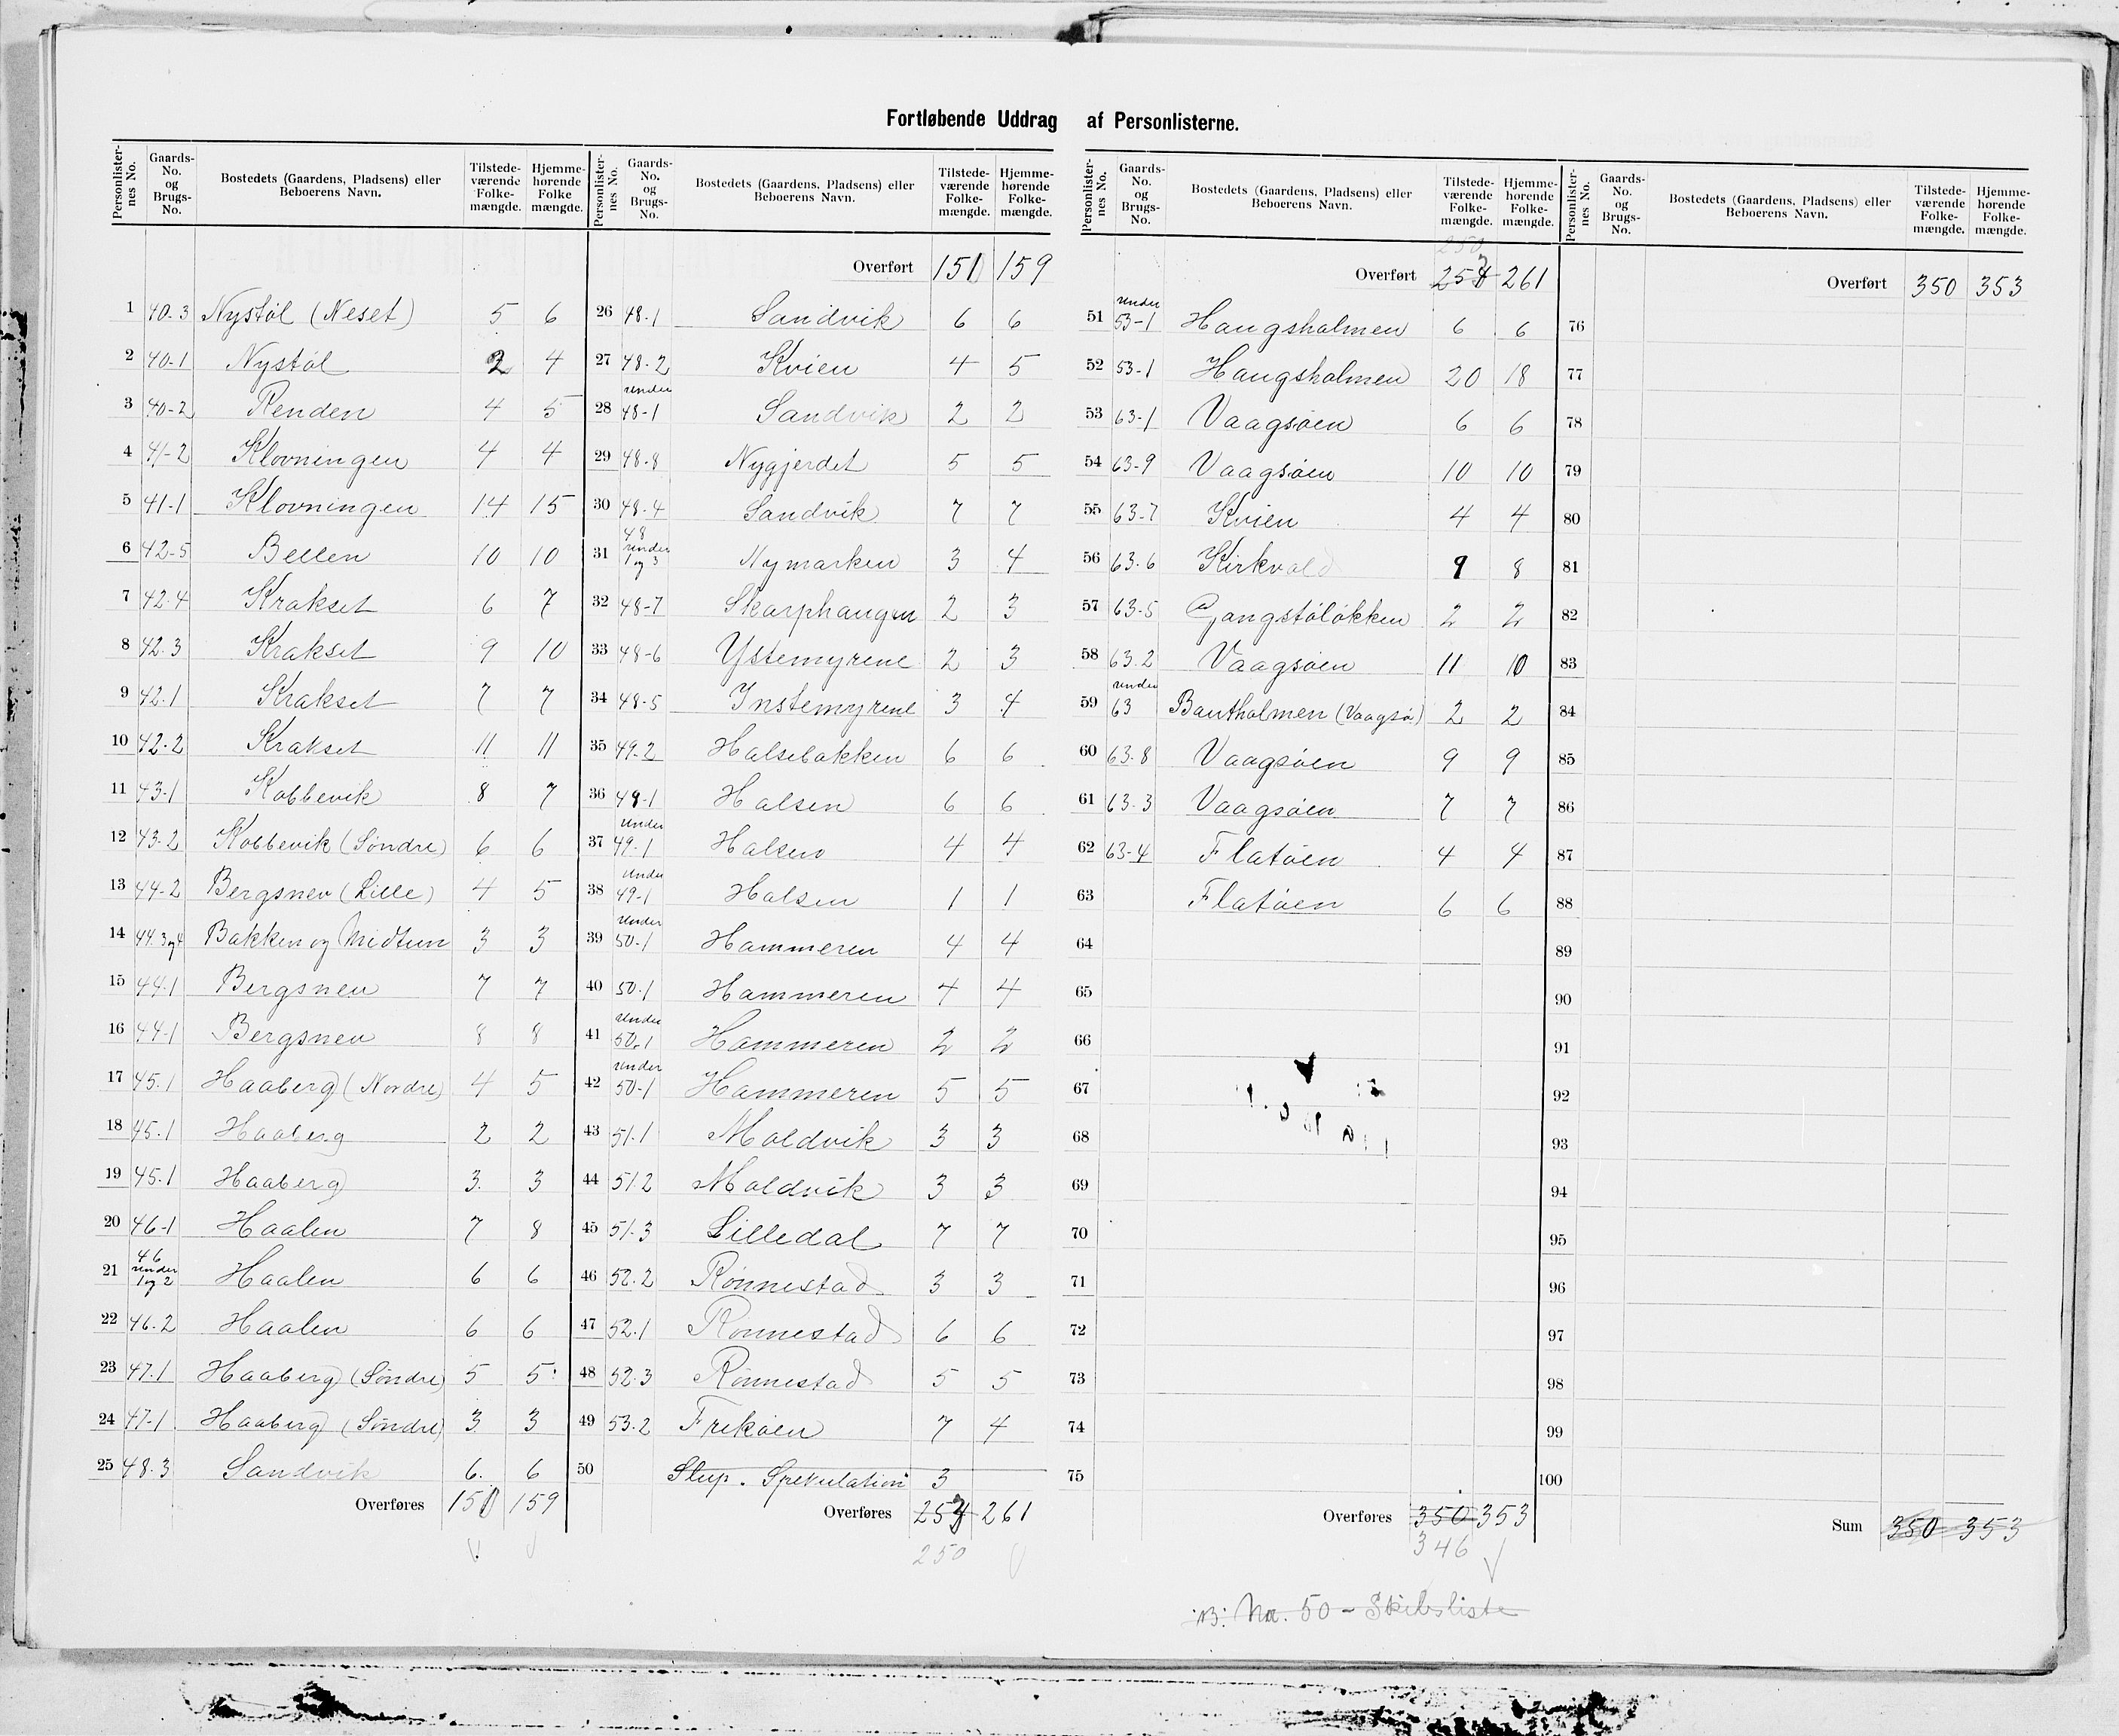 Fortløbende Uddrag af Personlisterne.
Personlisternes No. Gaards-No. og Brugs-No. Bostedets (Gaardens, Pladsens) eller Beboerens Navn. Tilstedeværende Folkemængde. Hjemmehørende Folkemængde.
1 40-3 Nystøl (Neset) 5 6
2 40-1 Nystøl 2 4
3 40-2 Renden 4 5
4 41-2 Klovningen 4 4
5 41-1 Klovningen 14 15
6 42-5 Bellen 10 10
7 42.4 Krakset 6 7
8 42.3 Krakset 9 10
9 42.1 Krakset 7 7
10 42.2 Krakset 11 11
11 43-1 Kobbevik 8 7
12 43.2 Kobbevik (Søndre) 6 6
13 44-2 Bergsnev (Lille) 4 5
14 44.3 og 4 Bakken og Midtun 3 3
15 44.1 Bergsnev 7 7
16 44-1 Bergsnev 8 8
17 45.1 Haaberg (Nordre) 4 5
18 45.1 Haaberg 2 2
19 45.1 Haaberg 3. 3
20 46-1 Haalen 7 8
21 46 under 1 og 2 Haalen 6 6
22 46.2 Haalen 6 6
23 47.1 Haaberg (Søndre) 5 5
24 47-1 Haaberg (Søndre) 3 3
25 48.3 Sandvik 6. 6
Overføres 151 159
Personlisternes No. Gaards-No. og Brugs-No. Bostedets (Gaardens, Pladsens) eller Beboerens Navn. Tilstedeværende Folkemængde. Hjemmehørende Folkemængde.
Overført 151 159
26 48-1 Sandvik 6 6
27 48-2 Kvien 4 5
28 under 48-1 Sandvik 2 2
29 48-8 Nygjerdet 5 5
30 48-4 Sandvik 7 7
31 48 under 1 og 3 Nymarken 3 4
32 48-7 Skarphaugen 2 3
33 48-6 Ystemyrene 2 3
34 48-5 Instemyrene 3 4
35 49-2 Halsebakken 6 6
36 49-1 Halsen 6 6
37 under 49-1 Halsen 4 4
38 under 49-1 Halsen 1 1
39 under 50-1 Hammeren 4 4
40 50.1 Hammeren 4 4
41 under 50.1 Hammeren 2 2
42 under 50-1 Hammeren 5 5
43 51.1 Moldvik 3 3
44 51.2 Moldvik 3 3
45 51.3 Lilledal 7 7
46 52.2 Rønnestad 3 3
47 52.1 Rønnestad 6 6
48 52.3 Rønnestad 5 5
49 53.2 Frekøen 7 4
50 Slup. Spekulation 3
Overføres 253 261
250
Personlisternes No. Gaards-No. og Brugs-No. Bostedets (Gaardens, Pladsens) eller Beboerens Navn. Tilstedeværende Folkemængde. Hjemmehørende Folkemængde.
250
Overført 253 261
51 under 53-1 Haugsholmen 6 6
52 53-1 Haugsholmen 20 18
53 63-1 Vaagsøen 6 6
54 63-9 Vaagsøen 10 10
55 63-7 Kvien 4 4
56 63.6 Kirkvold 9 8
57 63-5 Gangstøløkken 2 2
58 63.2 Vaagsøen 11 10
59 under 63 Bautholmen (Vaagsø) 2 2
60 63.8 Vaagsøen 9 9
61 63.3 Vaagsøen 7 7
62 63-4 Flatøen 4 4
63 Flatøen 6 6
64
65
66
67
68
69
70
71
72
73
74
75
Overføres 350 353
346
NB: No. 50 - Skibsliste
Personlisternes No. Gaards-No. og Brugs-No. Bostedets (Gaardens, Pladsens) eller Beboerens Navn. Tilstedeværende Folkemængde. Hjemmehørende Folkemængde.
Overført 350 353
76
77
78
79
80
81
82
83
84
85
86
87
88
89
90
91
92
93
94
95
96
97
98
99
100
Sum 350 353